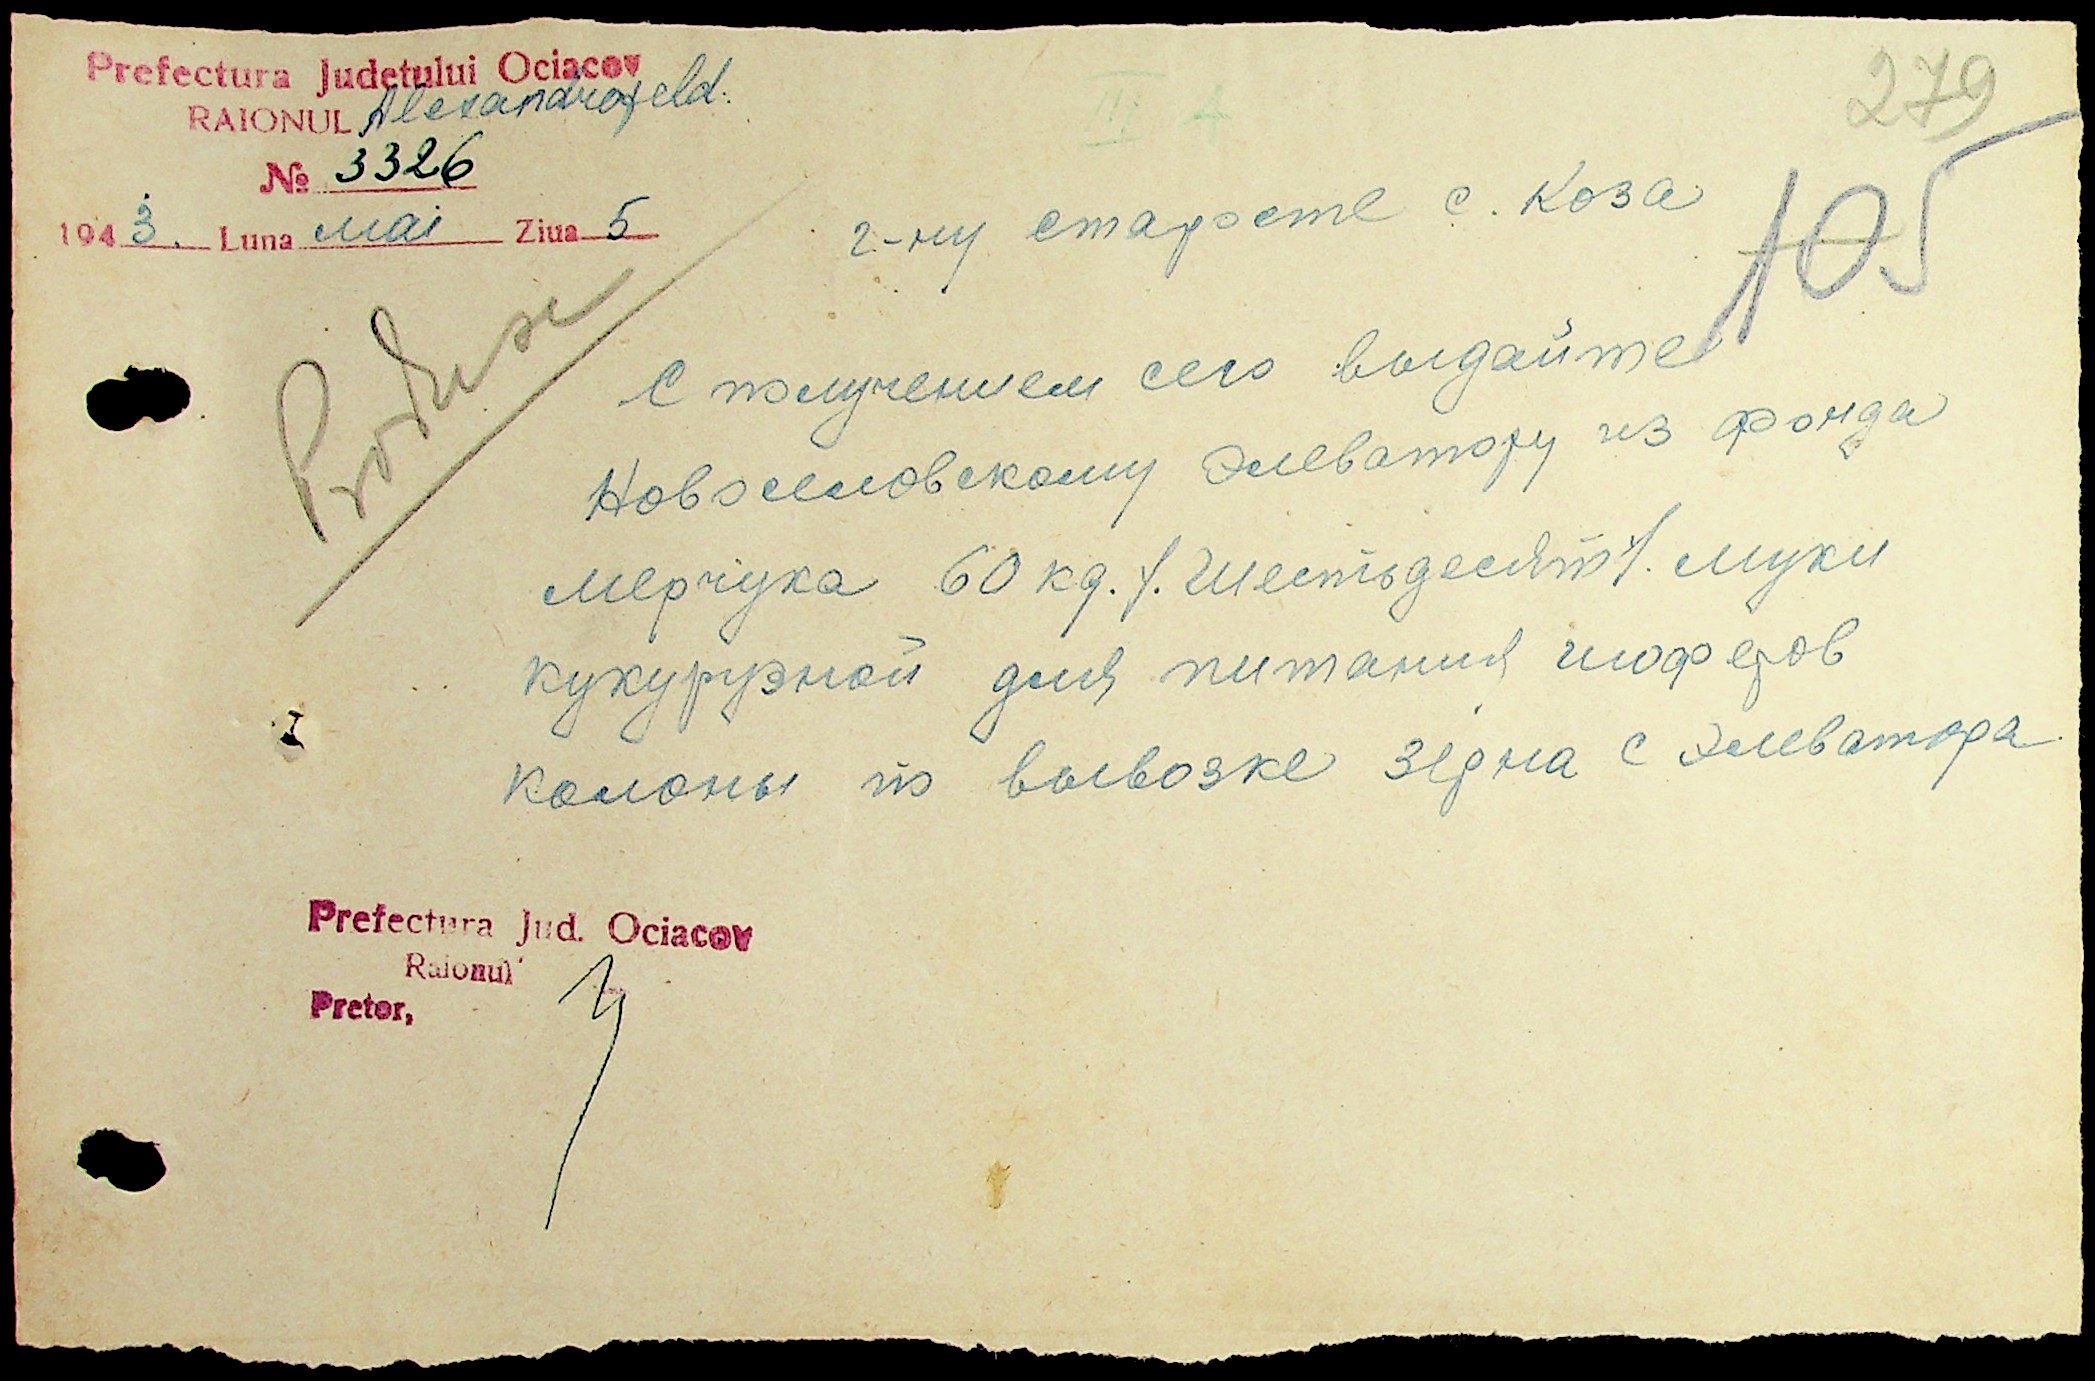 Prefectura Judeţului Ociacov
RAIONUL Alexandrofeld.
№ 3326
1943. Luna mai Ziua 5
279
105
г-ну старосте с. Коза
С получением сего выдайте
Новоселовскому Элеватору из фонда
мерчука 60 кг. /. Шестьдесят /. муки
кукурузной для питания шоферов
колоны по вывозке зерна с Элеватора.
Prefectura Jud. Ociacov
Raionul
Pretor,